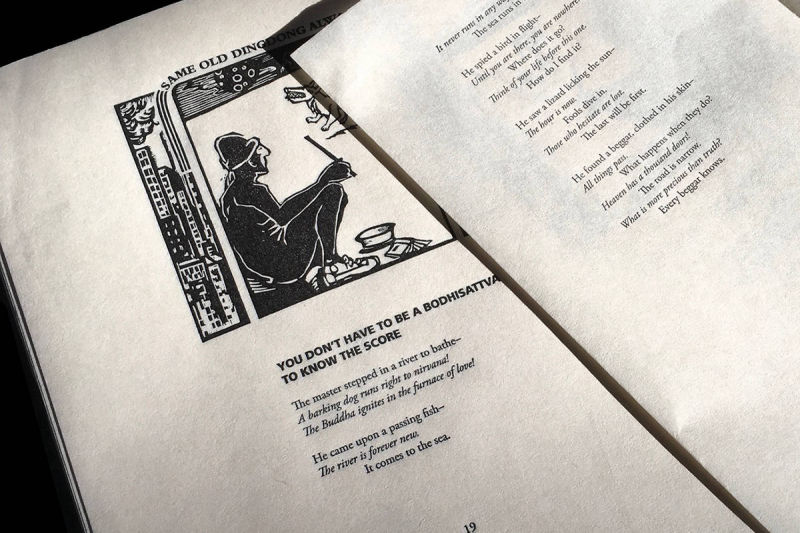 SAME OLD DINGDONG ALW
YOU DON'T HAVE TO BE A BODHISATTVA
TO KNOW THE SCORE
The master stepped in a river to bathe–
A barking dog runs right to nirvana!
The Buddha ignites in the furnace of love!
He came upon a passing fish–
The river is forever new.
It comes to the sea.
19
It never runs in any wa
The sea runs in
He spied a bird in flight–
Where does it go?
Until you are there, you are nowhere
How do I find it?
Think of your life before this one.
He saw a lizard licking the sun–
The hour is now.
Fools dive in.
Those who hesitate are lost.
The last will be first.
He found a beggar, clothed in his skin–
All things pass.
What happens when they do?
Heaven has a thousand doors!
The road is narrow.
What is more precious than truth?
Every beggar knows.